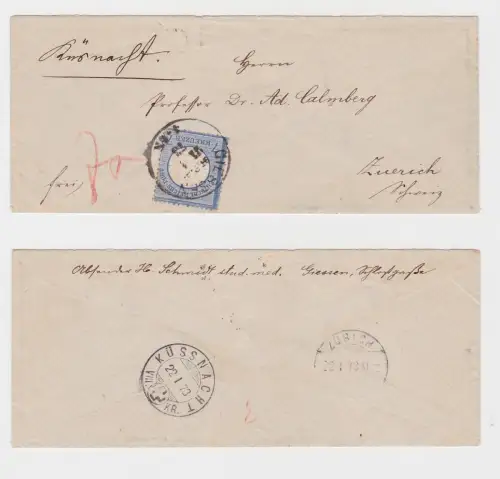 Küsnacht.
Herrn
Professor Dr. Ad. Calmberg
Zuerich
Schweiz
frei
70
KREUZER
Absender H. Schmidt stud. med. Giessen, Schloßgasse
KÜSSNACHT
22 I 73
XII
ZÜRICH
22 I 73
2